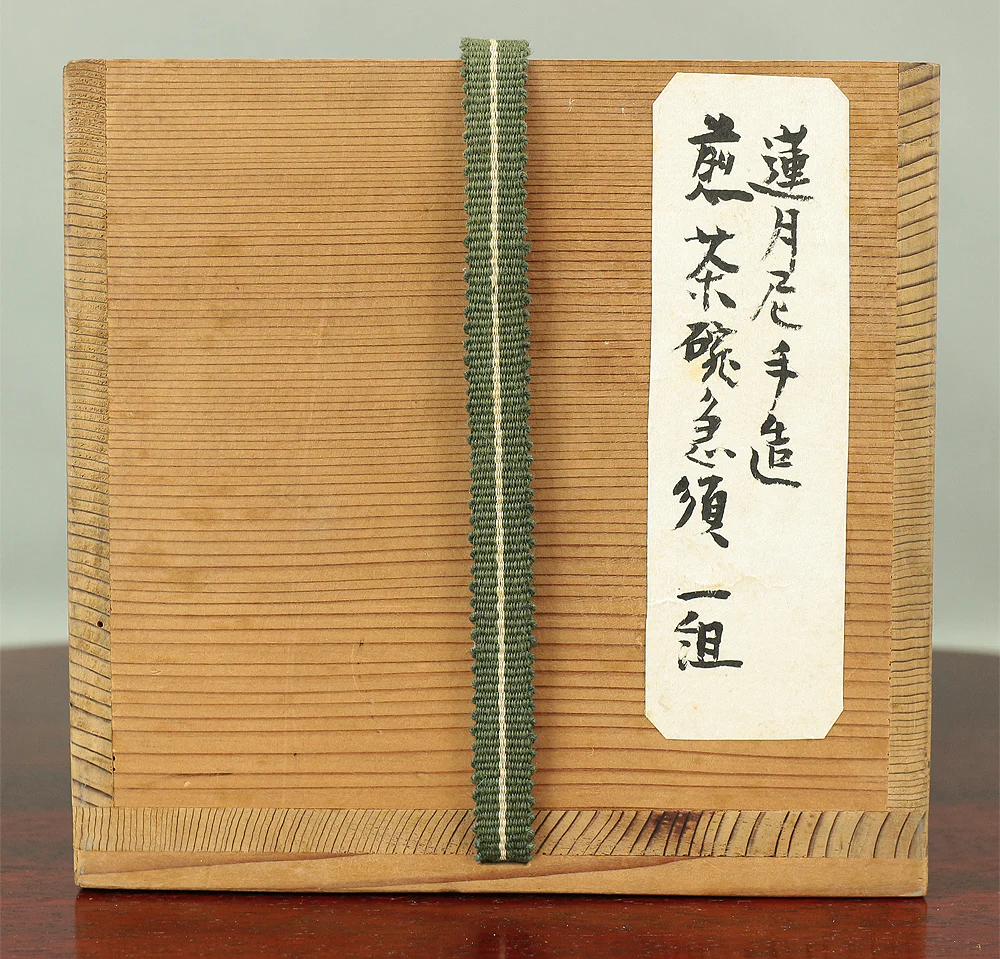 蓮月尼手造
煎茶碗急須 一組